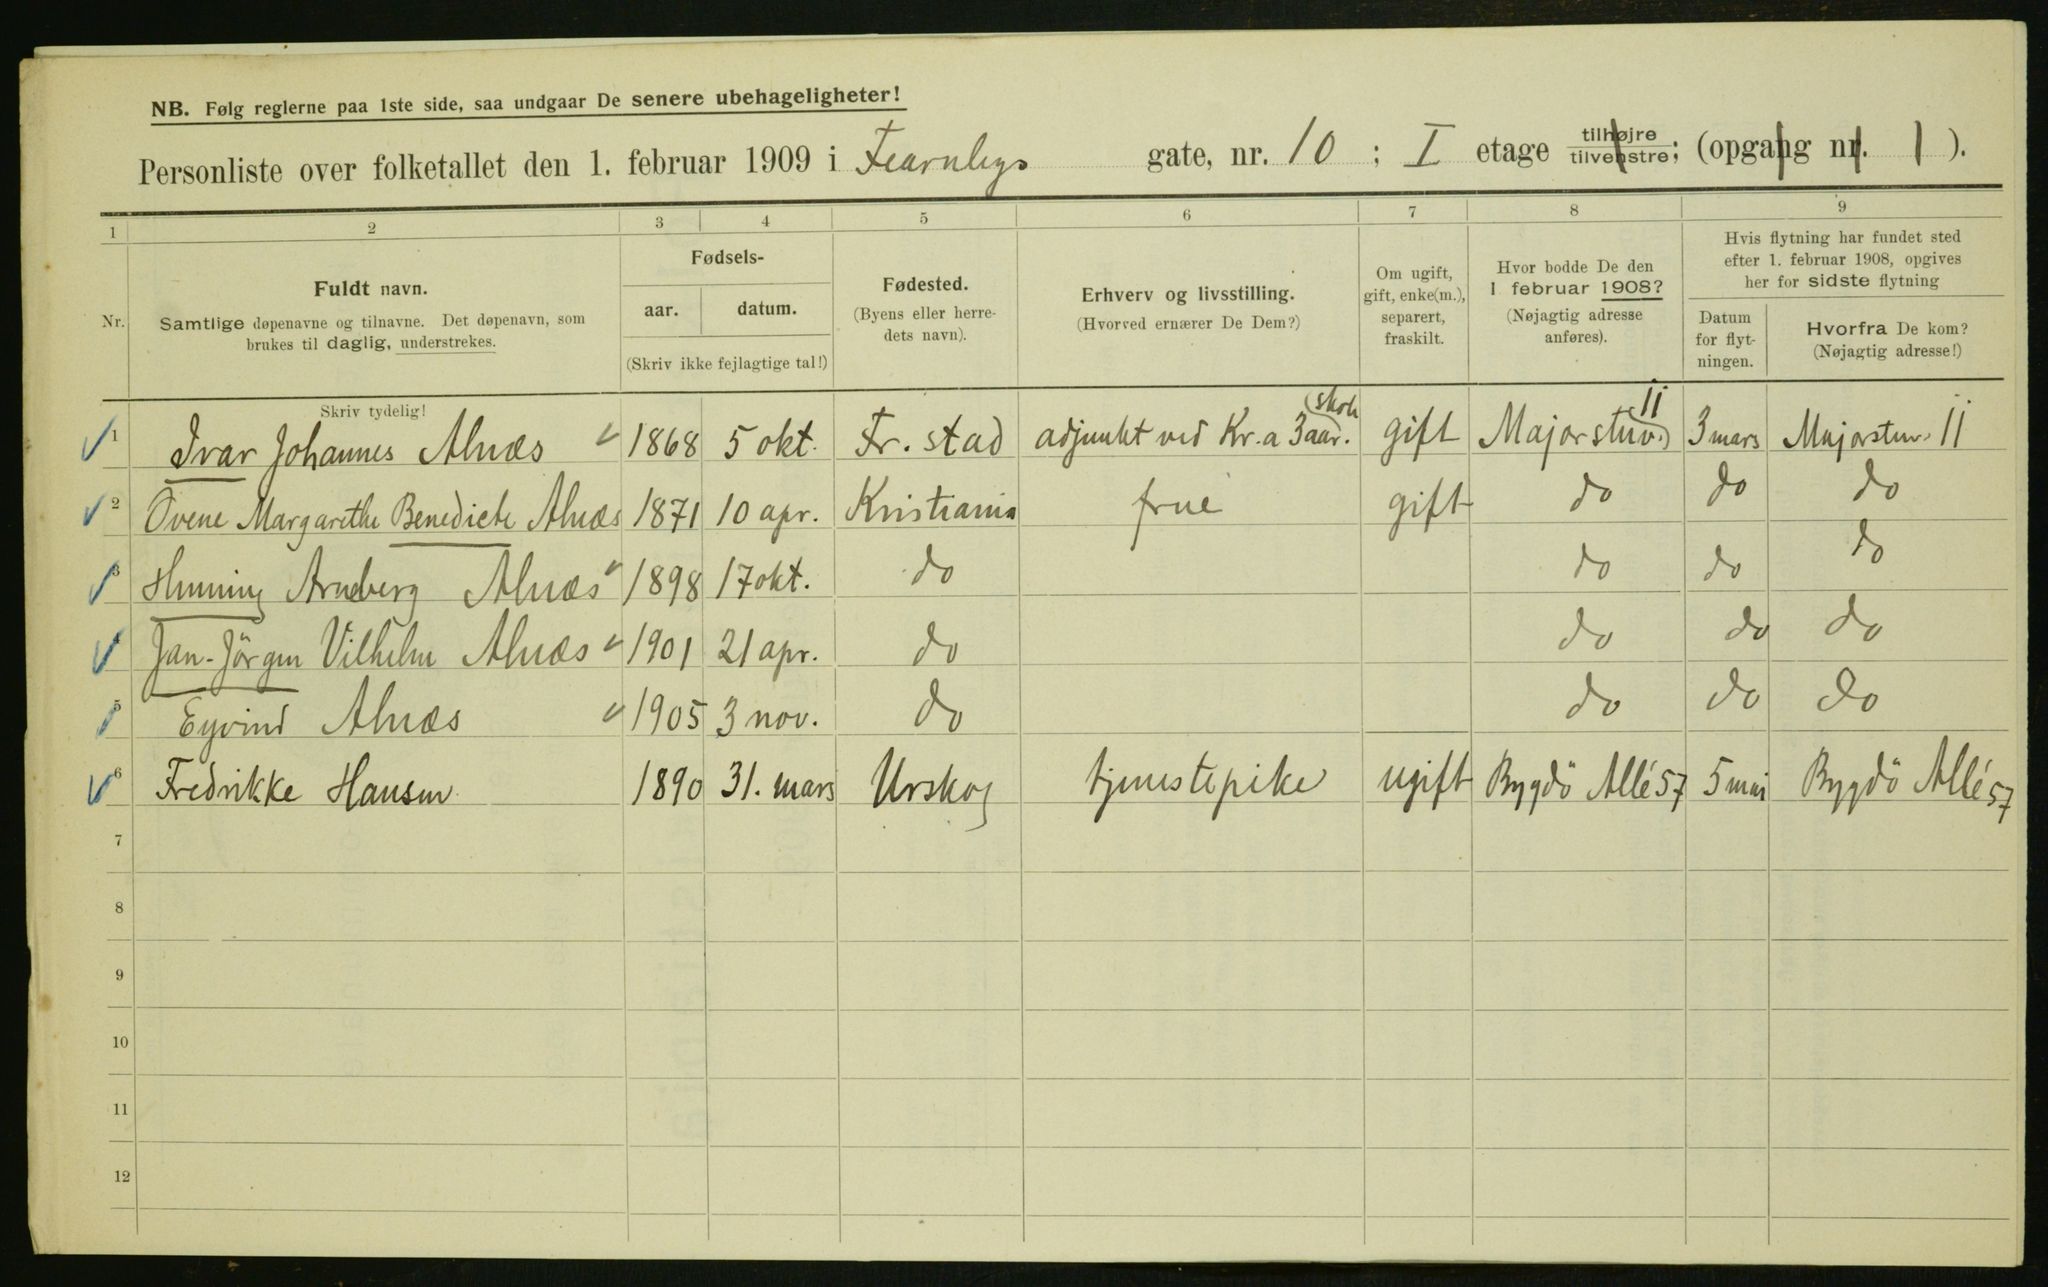 NB. Følg reglerne paa 1ste side, saa undgaar De senere ubehageligheter!
Personliste over folketallet den 1. februar 1909 i Fearnleys gate, nr. 10 ; I etage tilhøjre tilvenstre; (opgang nr. 1 ).
1 2 3 4 5 6 7 8 9
Nr.
Fuldt navn.
Samtlige døpenavne og tilnavne. Det døpenavn, som
brukes til daglig, understrekes.
Fødsels-
aar. datum.
(Skriv ikke fejlagtige tal!)
Fødested.
(Byens eller herre-
dets navn).
Erhverv og livsstilling.
(Hvorved ernærer De Dem?)
Om ugift,
gift, enke(m.),
separert,
fraskilt.
Hvor bodde De den
1 februar 1908?
(Nøjagtig adresse
anføres).
Hvis flytning har fundet sted
efter 1. februar 1908, opgives
her for sidste flytning
Datum
for flyt-
ningen.
Hvorfra De kom?
(Nøjagtig adresse!)
Skriv tydelig!
1 Ivar Johannes Alnæs 1868 5 okt. Fr. stad adjunkt ved Kr.a 3aar. skole gift Majorstuv. 11 3 mars Majorstuv. 11
2 Ovene Margarethe Benedicte Alnæs 1871 10 apr. Kristiania frue gift do do do
3 Henning Arneberg Alnæs 1898 17 okt. do do do do
4 Jan-Jörgen Vilhelm Alnæs 1901 21 apr. do do do do
5 Eyvind Alnæs 1905 3 nov. do do do do
6 Fredrikke Hansen 1890 31. mars Urskog tjenestepike ugift Bygdö Allé 57 5 mai Bygdö Allé 57
7
8
9
10
11
12